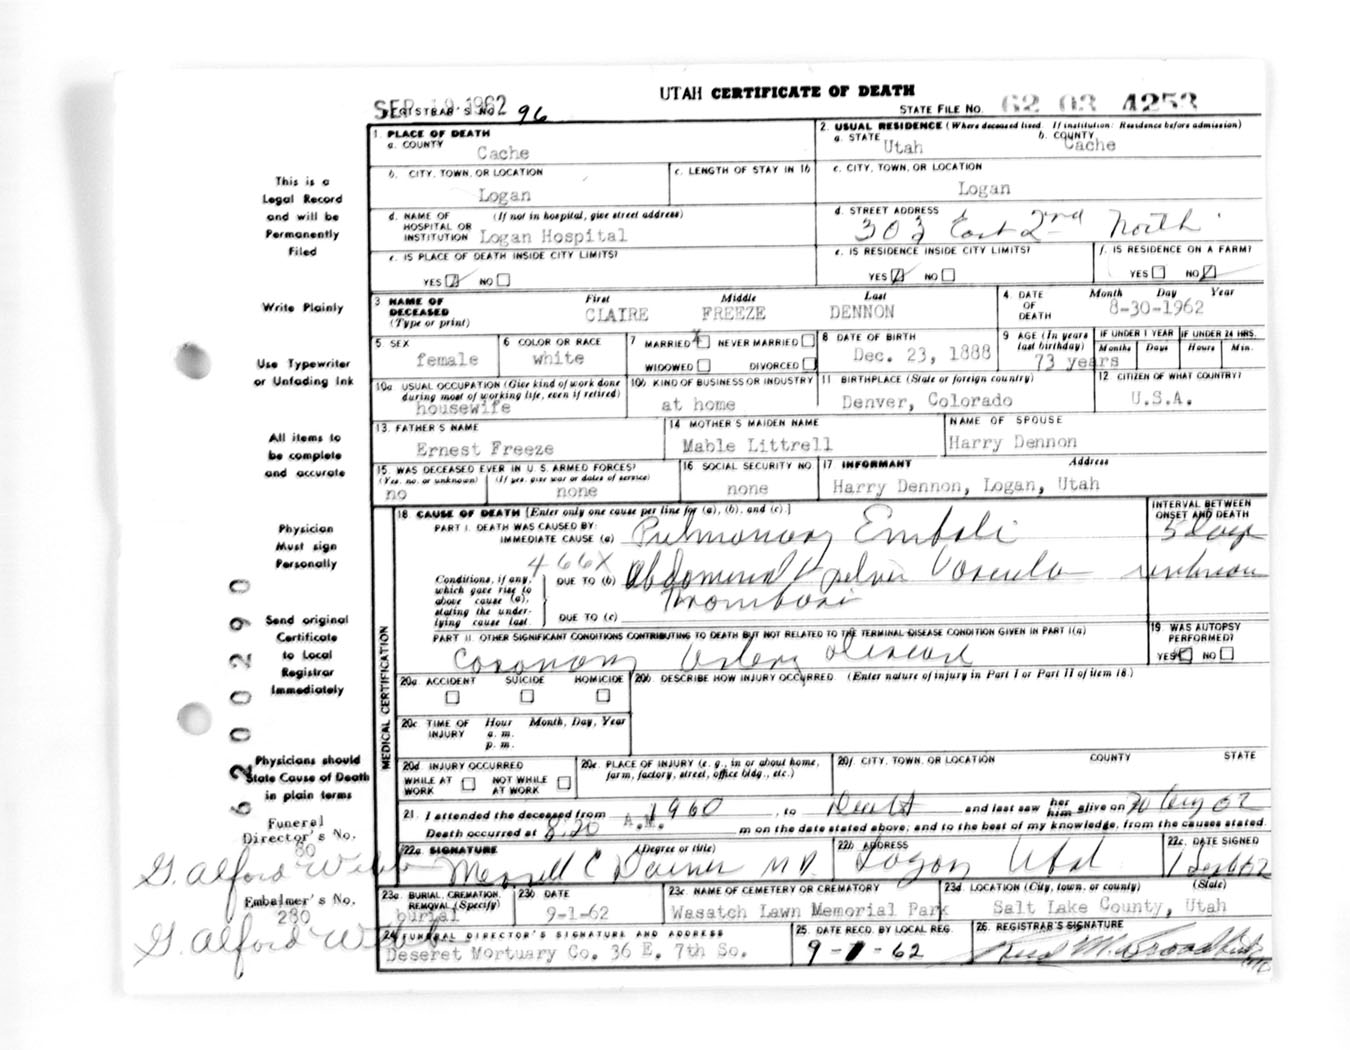 UTAH CERTIFICATE OF DEATH
SEP 19 1962
REGISTRAR'S NO. 96
STATE FILE NO. 62 03 4253
1. PLACE OF DEATH
a. COUNTY
Cache
2. USUAL RESIDENCE (Where deceased lived. If institution: Residence before admission)
a. STATE Utah
b. COUNTY Cache
b. CITY, TOWN, OR LOCATION
Logan
c. LENGTH OF STAY IN 1b
c. CITY, TOWN, OR LOCATION
Logan
d. NAME OF HOSPITAL OR INSTITUTION (If not in hospital, give street address)
Logan Hospital
d. STREET ADDRESS
303 East 2nd North
e. IS PLACE OF DEATH INSIDE CITY LIMITS?
YES NO
e. IS RESIDENCE INSIDE CITY LIMITS?
YES NO
f. IS RESIDENCE ON A FARM?
YES NO
3 NAME OF DECEASED (Type or print)
First Middle Last
CLAIRE FREEZE DENNON
4. DATE OF DEATH
Month Day Year
8-30-1962
5 SEX
female
6 COLOR OR RACE
white
7 MARRIED NEVER MARRIED
WIDOWED DIVORCED
8 DATE OF BIRTH
Dec. 23, 1888
9 AGE (In years last birthday)
73 years
IF UNDER 1 YEAR
Months Days
IF UNDER 24 HRS.
Hours Min.
10a USUAL OCCUPATION (Give kind of work done during most of working life, even if retired)
housewife
10b KIND OF BUSINESS OR INDUSTRY
at home
11 BIRTHPLACE (State or foreign country)
Denver, Colorado
12 CITIZEN OF WHAT COUNTRY?
U.S.A.
13. FATHER'S NAME
Ernest Freeze
14 MOTHER'S MAIDEN NAME
Mable Littrell
NAME OF SPOUSE
Harry Dennon
15. WAS DECEASED EVER IN U. S. ARMED FORCES?
(Yes, no, or unknown) (If yes, give war or dates of service)
no none
16 SOCIAL SECURITY NO.
none
17 INFORMANT Address
Harry Dennon, Logan, Utah
18 CAUSE OF DEATH [Enter only one cause per line for (a), (b), and (c).]
INTERVAL BETWEEN ONSET AND DEATH
PART I. DEATH WAS CAUSED BY:
IMMEDIATE CAUSE (a) Pulmonary Emboli 5 days
466X
Conditions, if any, which gave rise to above cause (a), stating the under-lying cause last.
DUE TO (b) Abdominal & pelvic Vascular unknown
Thrombosis
DUE TO (c)
PART II. OTHER SIGNIFICANT CONDITIONS CONTRIBUTING TO DEATH BUT NOT RELATED TO THE TERMINAL DISEASE CONDITION GIVEN IN PART I(a)
Coronary Artery disease
19 WAS AUTOPSY PERFORMED?
YES NO
MEDICAL CERTIFICATION
20a ACCIDENT SUICIDE HOMICIDE
20b. DESCRIBE HOW INJURY OCCURRED. (Enter nature of injury in Part I or Part II of item 18.)
20c TIME OF INJURY Hour Month, Day, Year
a. m.
p. m.
20d INJURY OCCURRED
WHILE AT WORK NOT WHILE AT WORK
20e. PLACE OF INJURY (e. g., in or about home, farm, factory, street, office bldg., etc.)
20f. CITY, TOWN, OR LOCATION COUNTY STATE
21. I attended the deceased from 1960, to Death and last saw her him alive on 30 Aug 62
Death occurred at 8:20 A.M. m on the date stated above; and to the best of my knowledge, from the causes stated.
22a. SIGNATURE (Degree or title)
Merrill C Daines M D.
22b ADDRESS
Logan Utah
22c. DATE SIGNED
1 Sept 62
23a. BURIAL, CREMATION, REMOVAL (Specify)
burial
23b DATE
9-1-62
23c NAME OF CEMETERY OR CREMATORY
Wasatch Lawn Memorial Park
23d. LOCATION (City, town, or county) (State)
Salt Lake County, Utah
24 FUNERAL DIRECTOR'S SIGNATURE AND ADDRESS
Deseret Mortuary Co. 36 E. 7th So.
25. DATE RECD. BY LOCAL REG.
9-1-62
26. REGISTRAR'S SIGNATURE
This is a
Legal Record
and will be
Permanently
Filed
Write Plainly
Use Typewriter
or Unfading Ink
All items to
be complete
and accurate
Physician
Must sign
Personally
Send original
Certificate
to Local
Registrar
Immediately
Physicians should
State Cause of Death
in plain terms
Funeral
Director's No.
80
G. Alford Webb
Embalmer's No.
280
G. Alford Webb
62000290